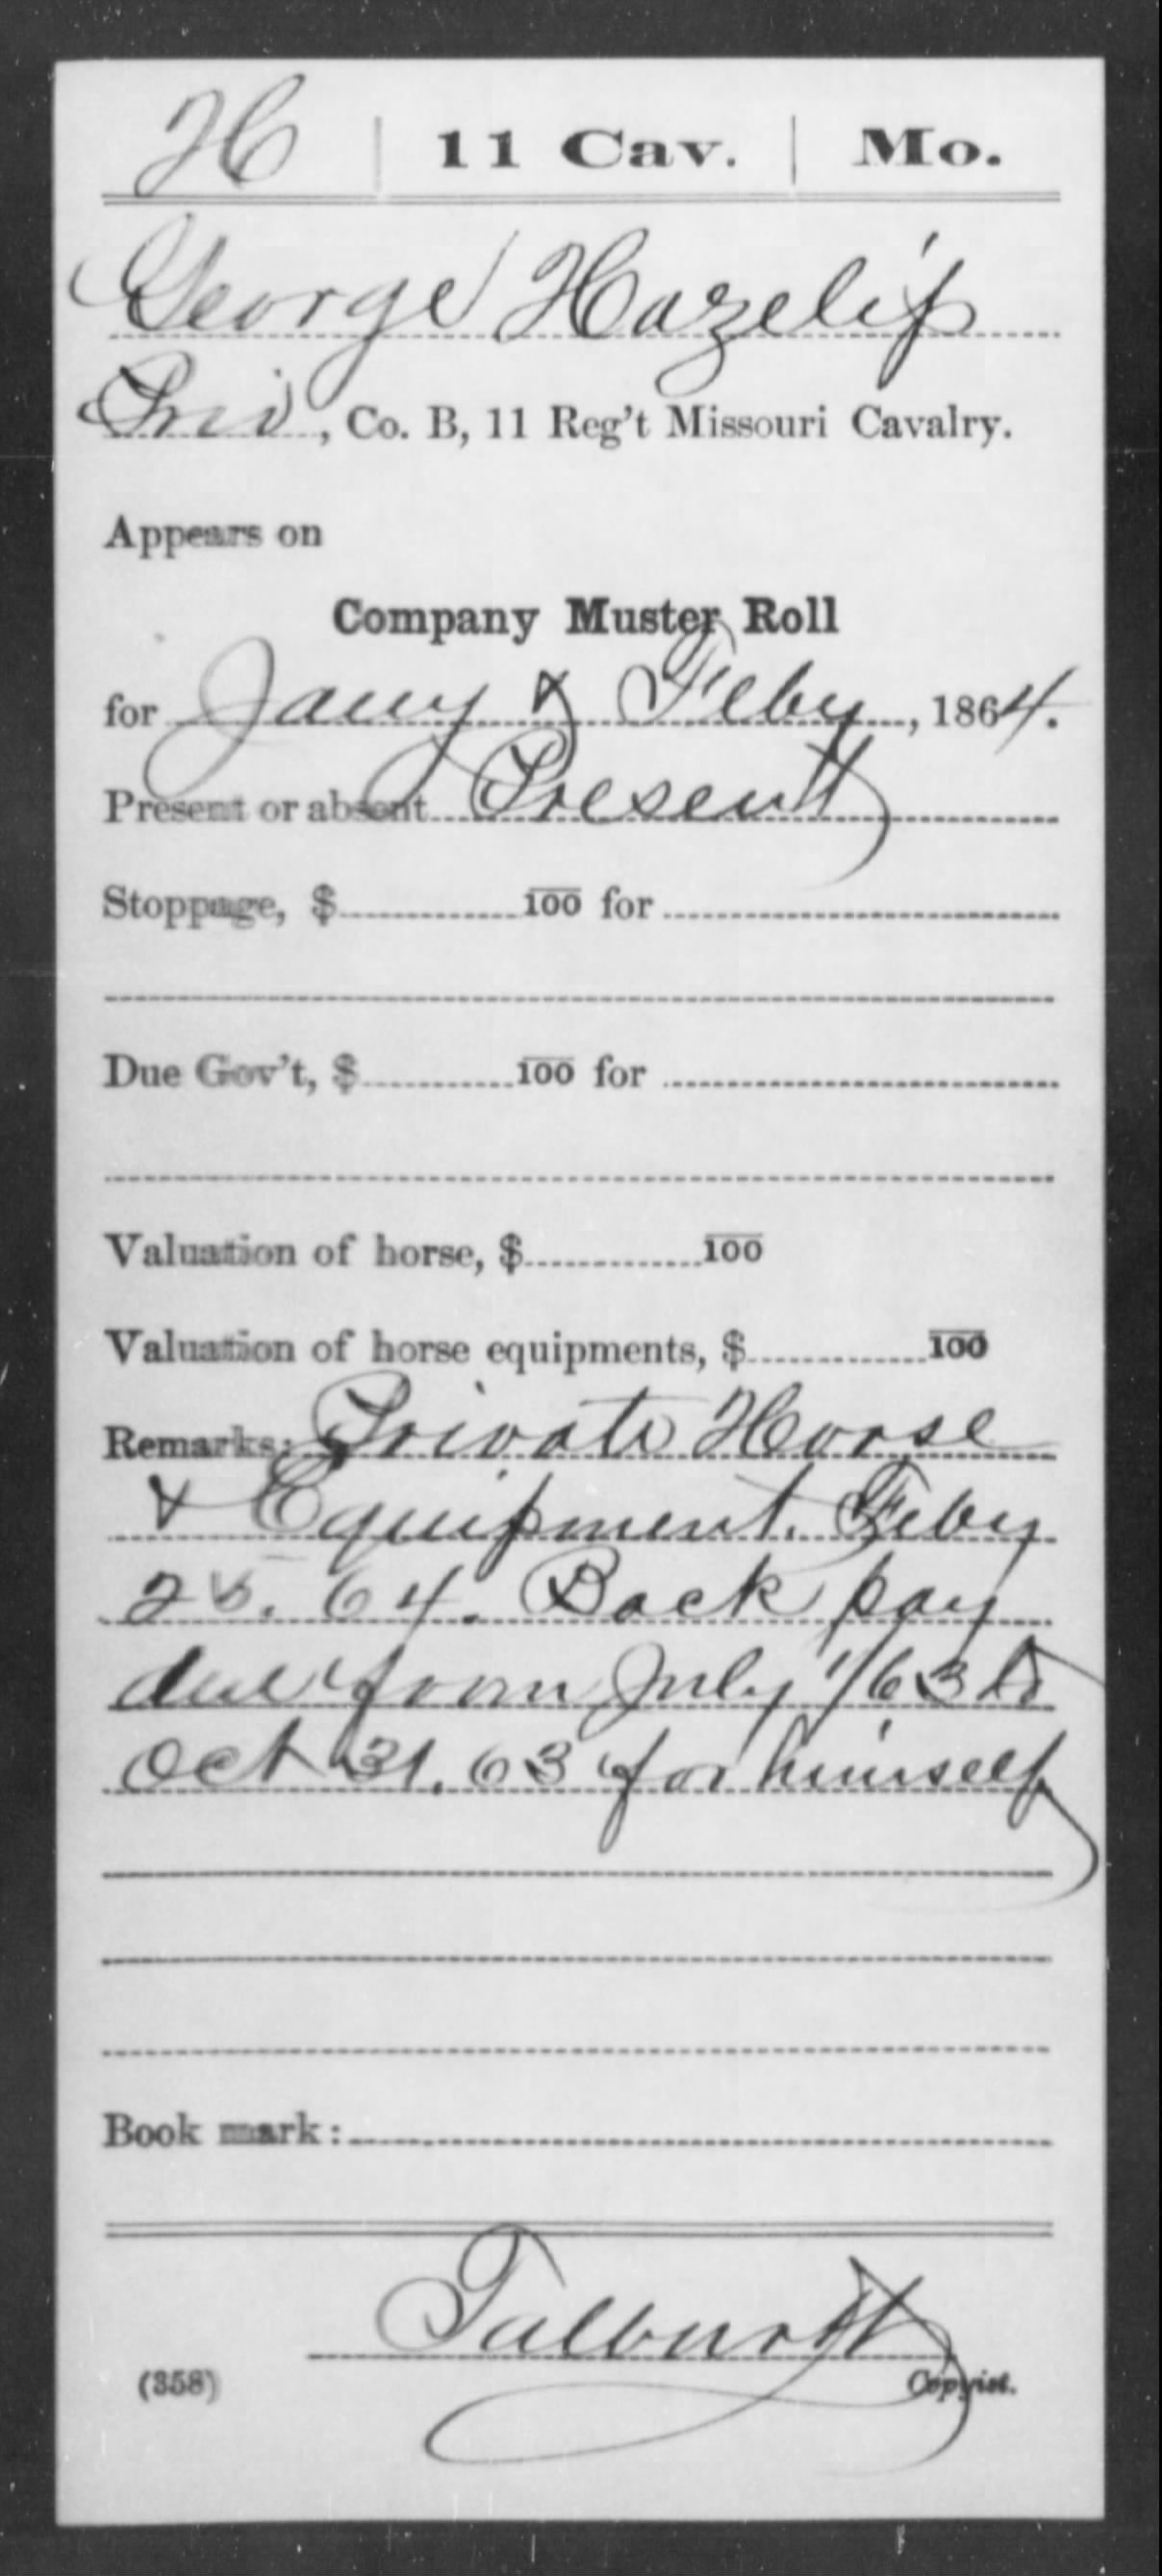 H | 11 Cav. | Mo.
George Hazelip
Priv, Co. B, 11 Reg't Missouri Cavalry.
Appears on
Company Muster Roll
for Jany & Feby, 1864.
Present or absent Present
Stoppage, $ 100 for
Due Gov't, $ 100 for
Valuation of horse, $ 100
Valuation of horse equipments, $ 100
Remarks: Private Horse
& Equipment. Feby
25. 64. Back pay
due from July 1/63 to
Oct 31. 63 for himself
Book mark:
Talburtt
(358) Copyist.